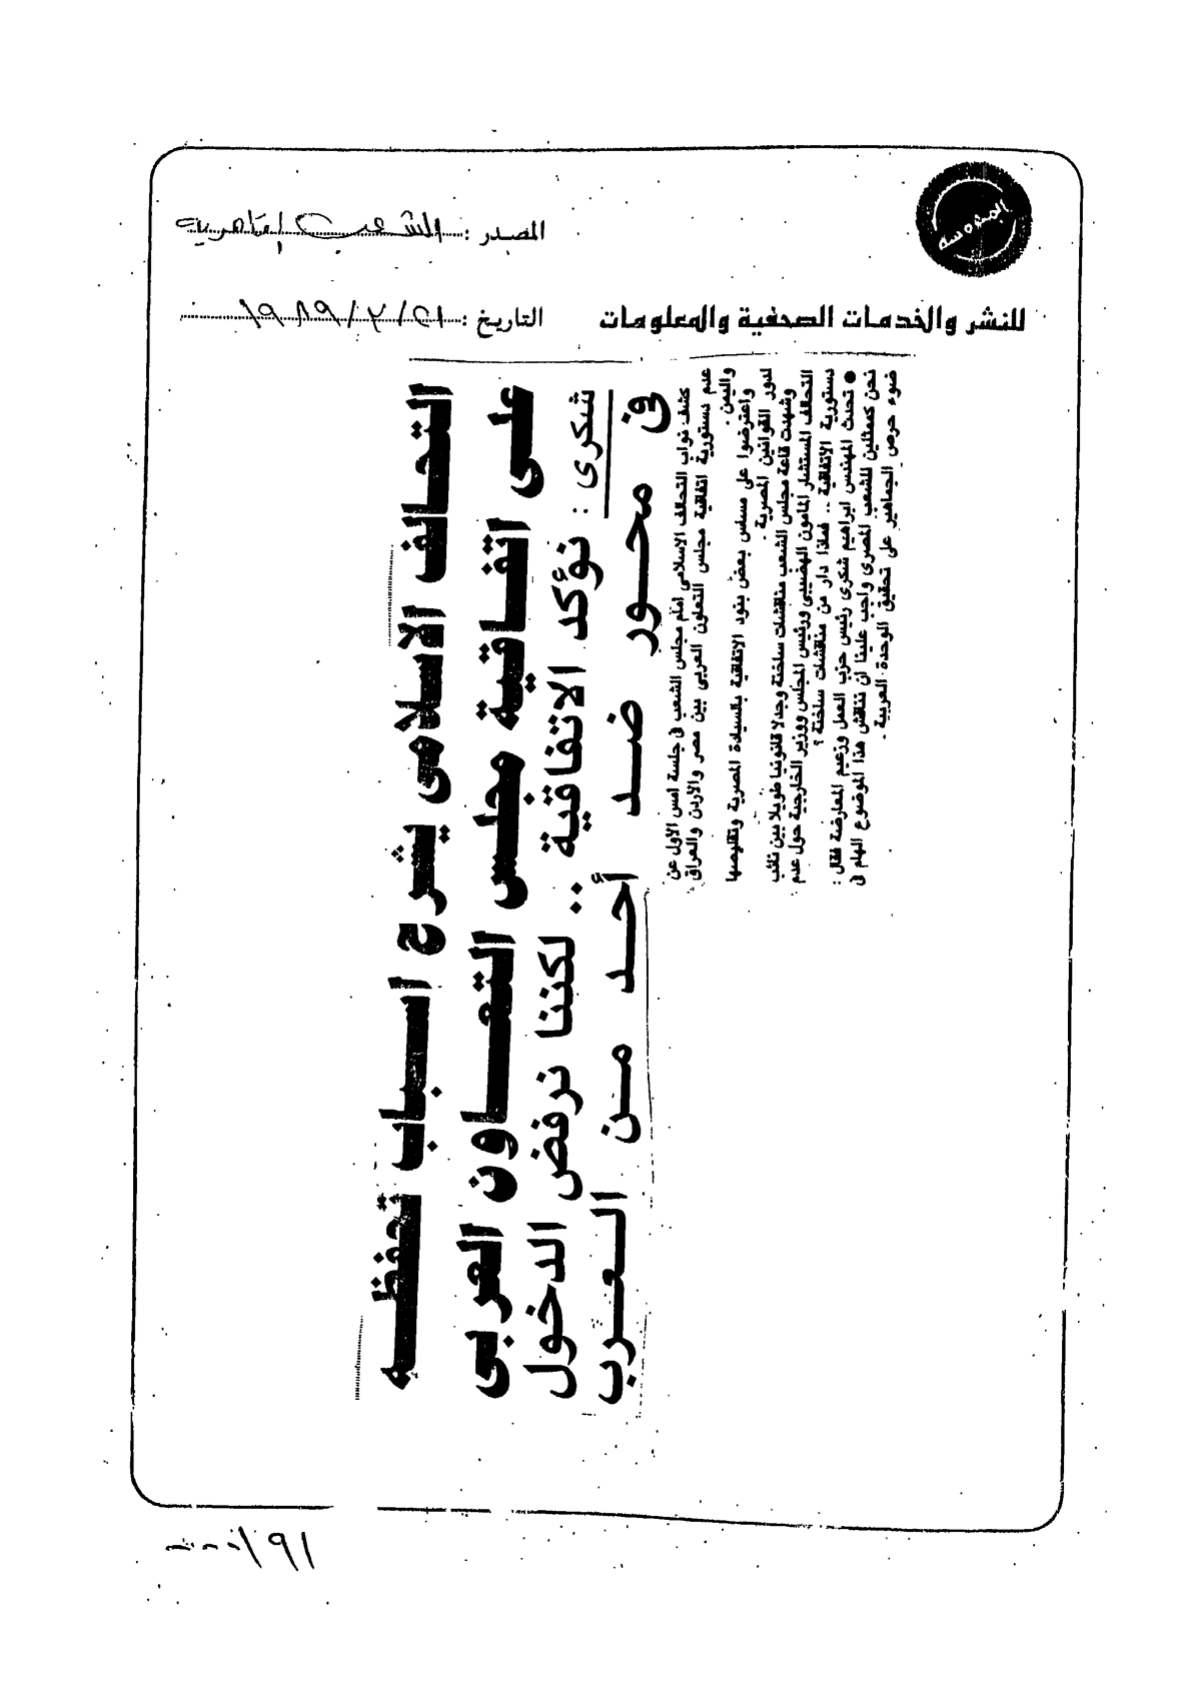 المحروسة
للنشر والخدمات الصحفية والمعلومات
المصدر : الشعب القاهرية
التاريخ : ٢١/٣/١٩٨٩
التحالف الاسلامى يشرح أسباب تحفظه
على اتفاقية مجلس التعاون العربى
شكرى : نؤكد الاتفاقية .. لكننا نرفض الدخول
فى محور ضد أحد من العرب
كشف نواب التحالف الاسلامى امام مجلس الشعب فى جلسة امس الاول عن
عدم دستورية اتفاقية مجلس التعاون العربى بين مصر والاردن والعراق
واليمن .
واعترضوا على مساس بعض بنود الاتفاقية بالسيادة المصرية وتقليصها
لدور القوانين المصرية .
وشهدت قاعة مجلس الشعب مناقشات ساخنة وجدلا قانونيا طويلا بين نائب
التحالف المستشار المأمون الهضيبى ورئيس المجلس ووزير الخارجية حول عدم
دستورية الاتفاقية .. فماذا دار من مناقشات ساخنة ؟
● تحدث المهندس ابراهيم شكرى رئيس حزب العمل وزعيم المعارضة فقال :
نحن كممثلين للشعب المصرى واجب علينا ان نناقش هذا الموضوع الهام فى
ضوء حرص الجماهير على تحقيق الوحدة العربية .